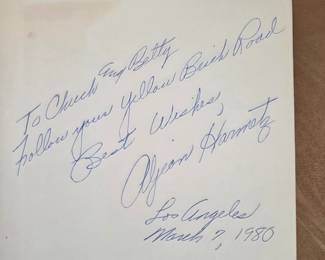 To Chuck and Betty
Follow your Yellow Brick Road
Best Wishes,
Aljean Harmetz
Los Angeles
March 7, 1980